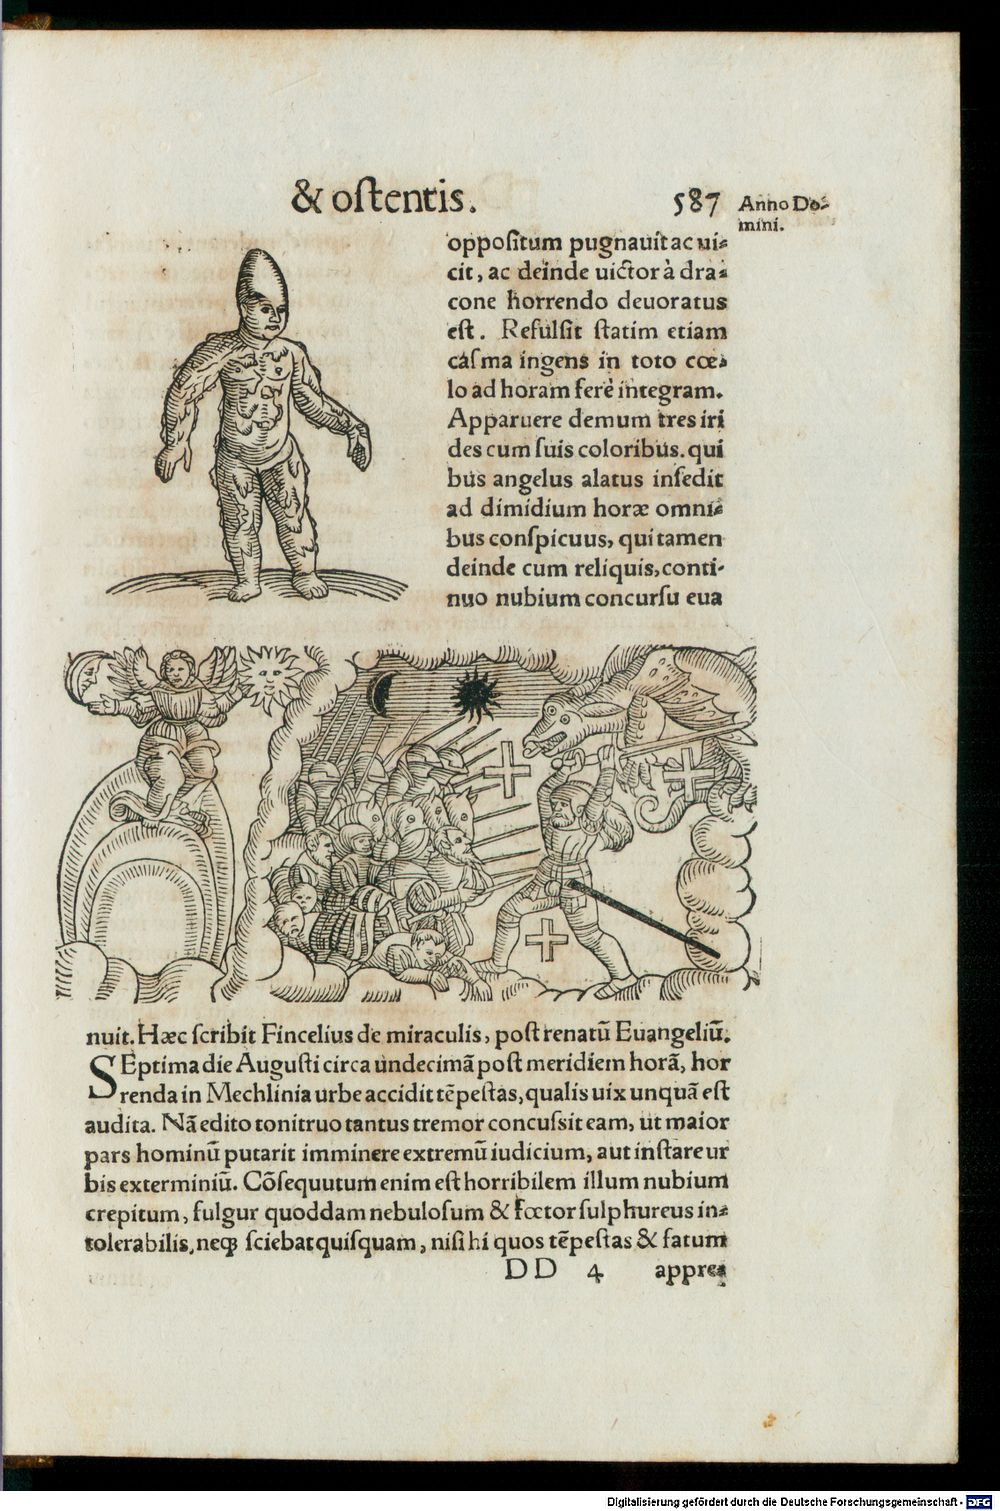 & oſtentis.
587
Anno Do-
mini.
oppoſitum pugnauit ac ui-
cit, ac deinde uictor à dra-
cone horrendo deuoratus
eſt. Refulſit ſtatim etiam
caſma ingens in toto cœ-
lo ad horam ferè integram.
Apparuere demum tres iri
des cum ſuis coloribus. qui
bus angelus alatus inſedit
ad dimidium horæ omni-
bus conſpicuus, qui tamen
deinde cum reliquis, conti-
nuo nubium concurſu eua
nuit. Hæc ſcribit Fincelius de miraculis, poſt renatũ Euangeliũ.
SEptima die Auguſti circa undecimã poſt meridiem horã, hor
renda in Mechlinia urbe accidit tẽpeſtas, qualis uix unquã eſt
audita. Nã edito tonitruo tantus tremor concuſsit eam, ut maior
pars hominũ putarit imminere extremũ iudicium, aut inſtare ur
bis exterminiũ. Cõſequutum enim eſt horribilem illum nubium
crepitum, fulgur quoddam nebuloſum & fœtor ſulphureus in-
tolerabilis, neqꝫ ſciebat quiſquam, niſi hi quos tẽpeſtas & fatum
DD 4
appre-
Digitalisierung gefördert durch die Deutsche Forschungsgemeinschaft - DFG